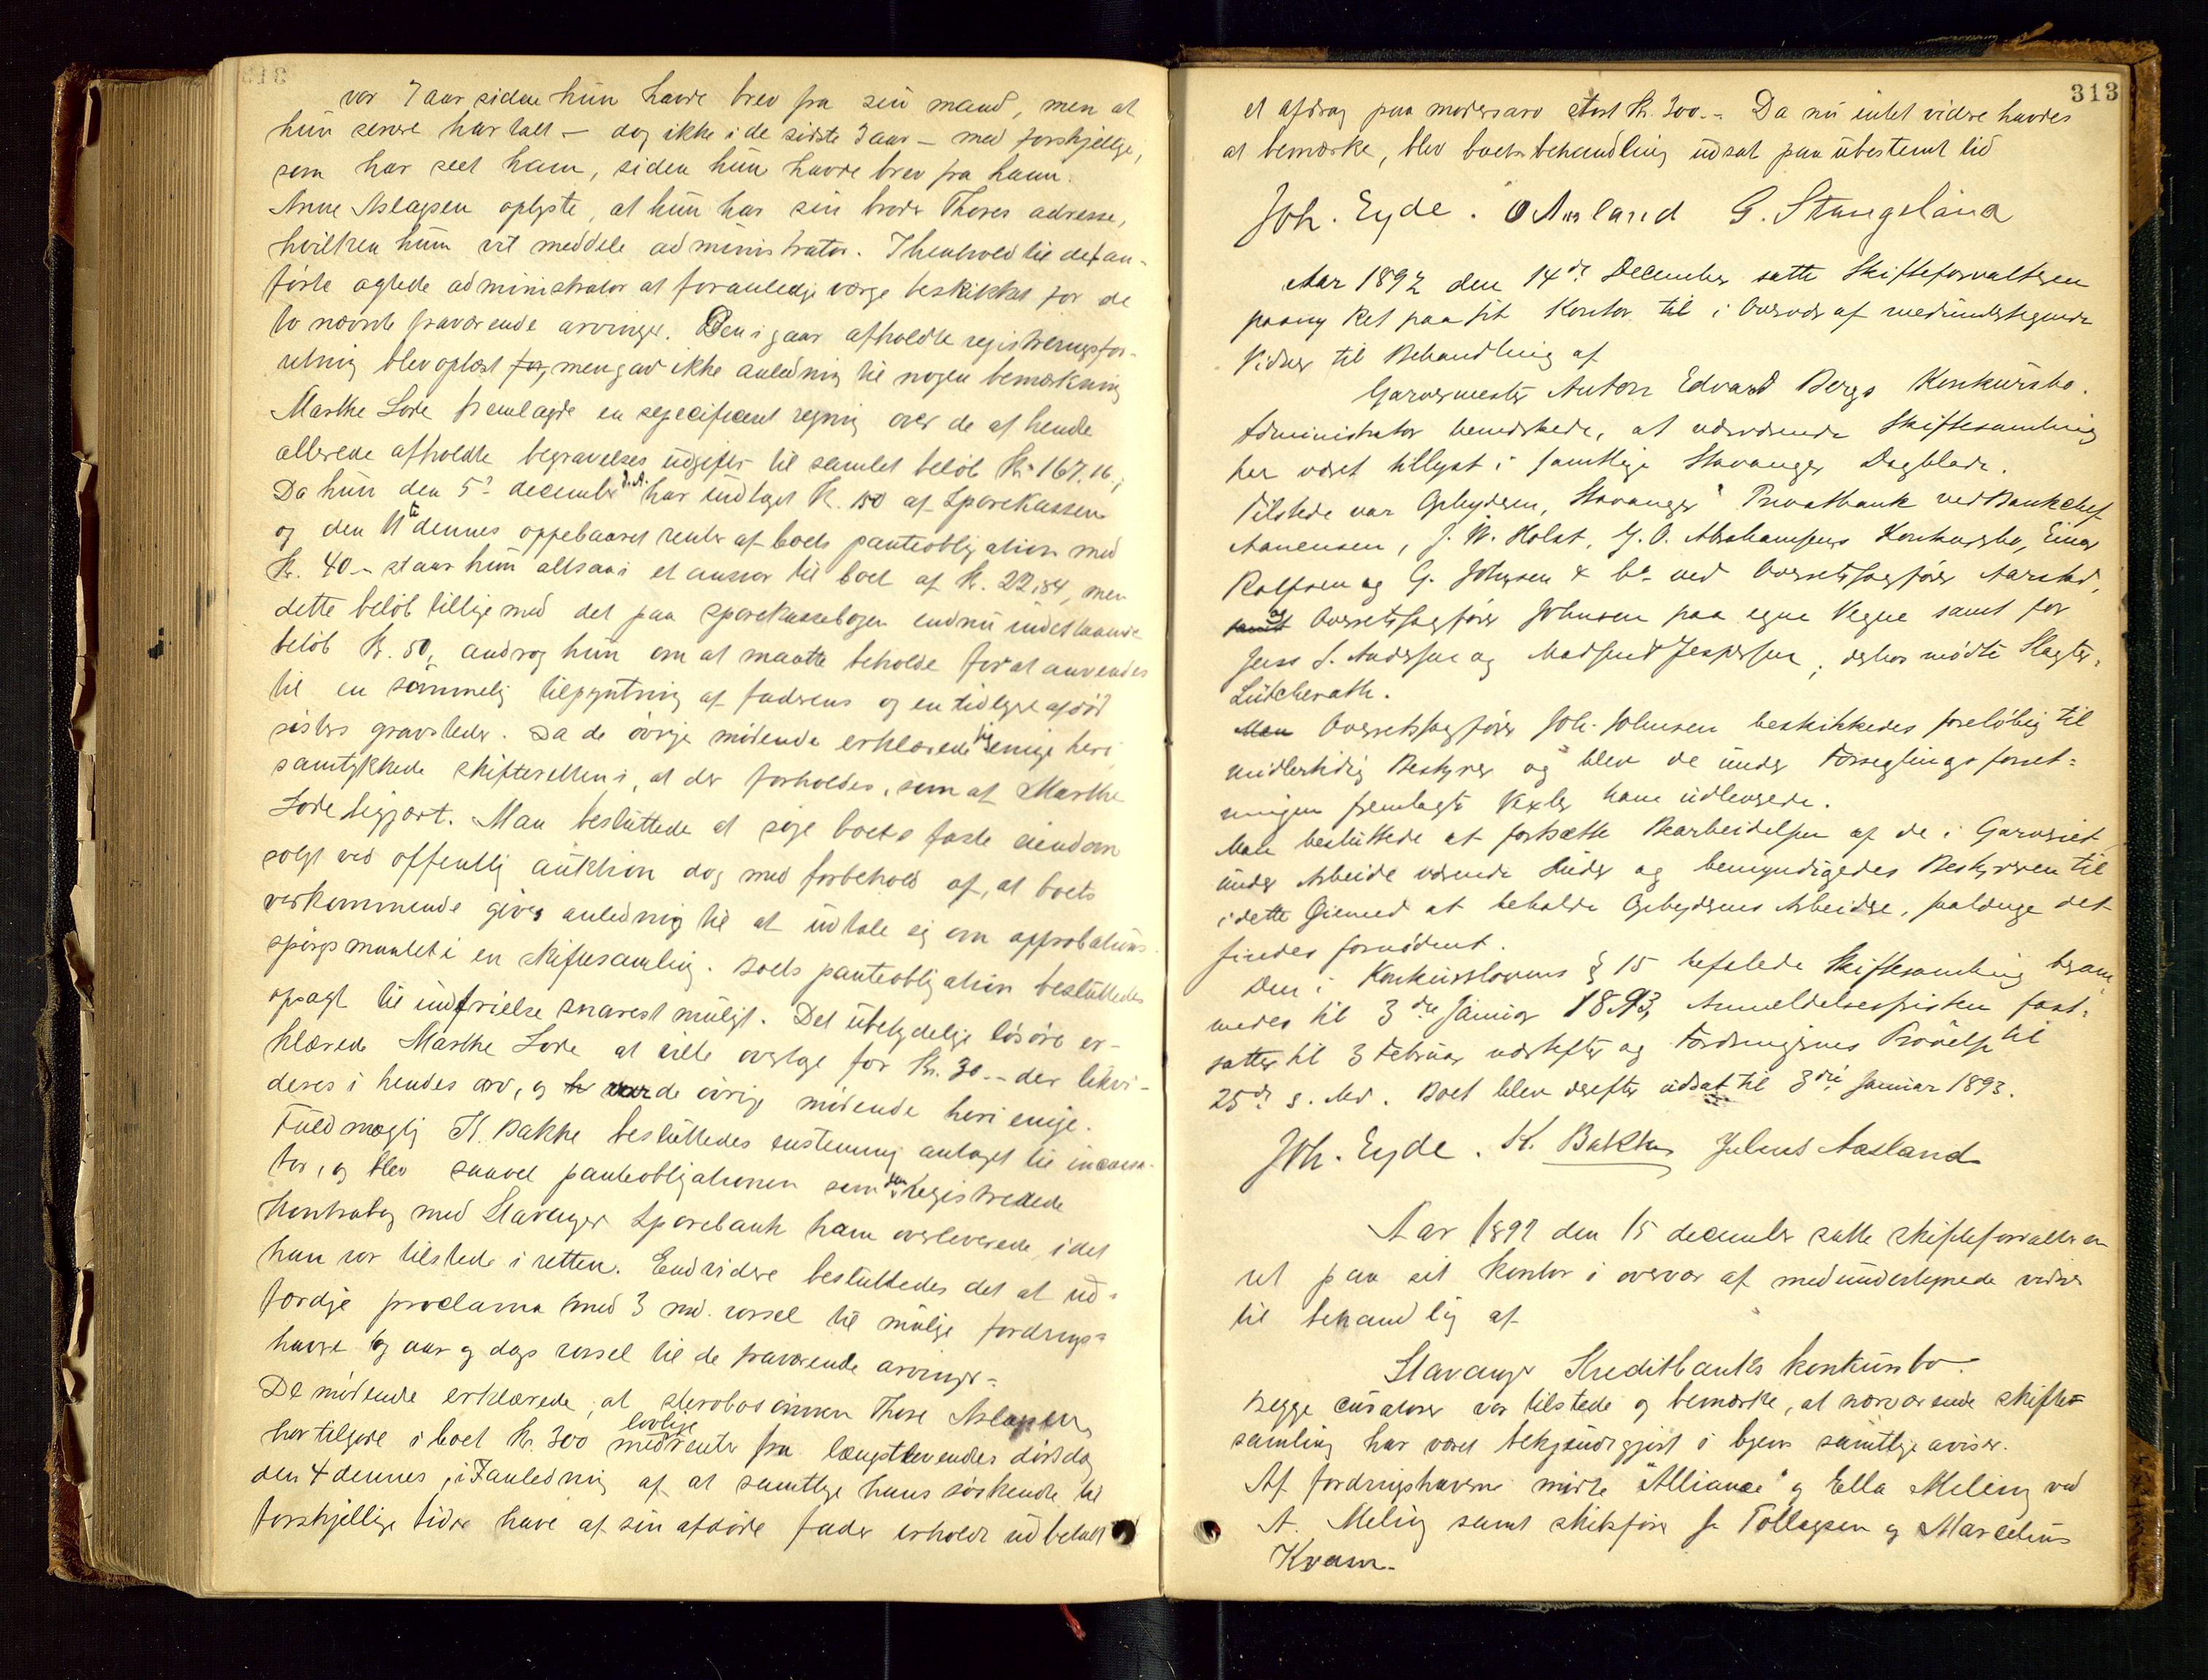 var 7 aar siden hun havde brev fra sin mand, men at
hun senere har talt – dog ikke i de sidste 3 aar – med forskjellige,
som har seet ham, siden hun havde brev fra ham.
Anne Aslagsen oplyste, at hun har sin broder Thores adresse,
hvilken hun vil meddele administrator. I henhold til det an-
førte agtede administrator at foranledige værge beskikket for de
to nævnte fraværende arvinger. Den i gaar afholdte registreringsfor-
retning blev oplæst for, men gav ikke anledning til nogen bemærkning
Marthe Lode fremlagde en specificeret regning over de af hende
allerede afholdte begravelses udgifter til samlet beløb Kr. 167.16.;
Da hun den 5te december d.A. har indtaget Kr. 150 af Sparekassen
og den 11te dennes oppebaaret renter af boets panteobligation med
Kr. 40.– staar hun altsaa i et ansvar til boet af Kr. 22.84, men
dette beløb tillige med det paa sparekassebogen endnu indestaaende
beløb Kr. 50, androg hun om at maatte beholde for at anvendes
til en sømmelig tilpyntning af faderens og en tidligere afdød
søsters gravsteder. Da de øvrige mødende erklærede sig enige heri
samtykkede skifteretten i, at der forholdes, som af Marthe
Lode begjært. Man besluttede at søge boets faste eiendom
solgt ved offentlig auktion dog med forbehold af, at boets
vedkommende gives anledning til at udtale sig om approbations-
spørgsmaalet i en skiftesamling. Boets panteobligation besluttedes
opsagt til indfrielse snarest muligt. Det ubetydelige løsøre er-
klærede Marthe Lode at ville overtage for Kr. 30.– der likvi-
deres i hendes arv, og var de øvrige mødende heri enige.
Fuldmægtig K. Bakke besluttedes enstemmig antaget til incassa-
tor, og blev saavel panteobligationen som den registrerede
Kontrabog med Stavanger Sparebank ham overleverede, idet
han var tilstede i retten. Endvidere besluttedes det at ud-
færdige proclama med 3 md. varsel til mulige fordrings-
havere og aar og dags varsel til de fraværende arvinger.–
De mødende erklærede, at stervbosønnen Thore Aslagsen
har tilgode i boet Kr. 300 med lovlige renter fra længstlevendes dødsdag
den 4 dennes, i Anledning af at samtlige hans søskende til
forskjellige tider have af sin afdøde fader erholdt udbetalt
313
et afdrag paa mødrearv stort Kr. 300.– Da nu intet videre havdes
at bemærke, blev boets behandling udsat paa ubestemt tid
Joh. Eyde. O Aasland G. Stangeland
Aar 1892 den 14de December satte Skifteforvalteren
paany Ret paa sit Kontor til i Overvær af medundertegnede
Vidner til Behandling af
Garvermester Anton Edvard Bergs Konkursbo.
Administrator bemærkede, at nærværende Skiftesamling
har været tillyst i samtlige Stavanger Dagblade.
Tilstede var Gebyderen, Stavanger Privatbank ved Bankchef
Aanensen, J. W. Holst, G. O. Abrahamsens Konkursbo, Einar
Rolfsen og G. Johnsen & Co ved Overretssagfører Aarstad,
samt og Overretssagfører Johnsen paa egne Vegne samt for
Jens S. Andersen og Madsen & Jespersen, derhos mødte Slagter
Lütcherath.
Man Overretssagfører Joh. Johnsen beskikkedes foreløbig til
midlertidig Bestyrer og blev de under Forseglingsforret-
ningen fremlagte Vexler ham udleverede.
Man besluttede at fortsætte Bearbeidelsen af de i Garveriet
under Arbeide værende Huder og bemyndigedes Bestyreren til
i dette Øiemed at beholde Gebyderens Arbeidere, saalænge det
findes fornødent.
Den i Konkurslovens § 15 befalede Skiftesamling beram-
medes til 3die Januar 1893, Anmeldelsesfristen fast-
sattes til 3 Februar næstefter og Fordringernes Prøvelse til
25de s. Md. Boet blev derefter udsat til 3die Januar 1893.
Joh. Eyde. K. Bakke Julius Aasland
Aar 1892 den 15 december satte skifteforvalteren
ret paa sit kontor i overvær af medundertegnede vidner
til behandlig af
Stavanger Kreditbanks konkursbo
Begge curatorer var tilstede og bemærkte, at nærværende skifte-
samling har været bekjendtgjort i byens samtlige aviser.
Af fordringshaverne mødte "Alliance" og Ella Meling ved
A. Meling samt skibsfører Tollagsen og Marcelius
Kvam.